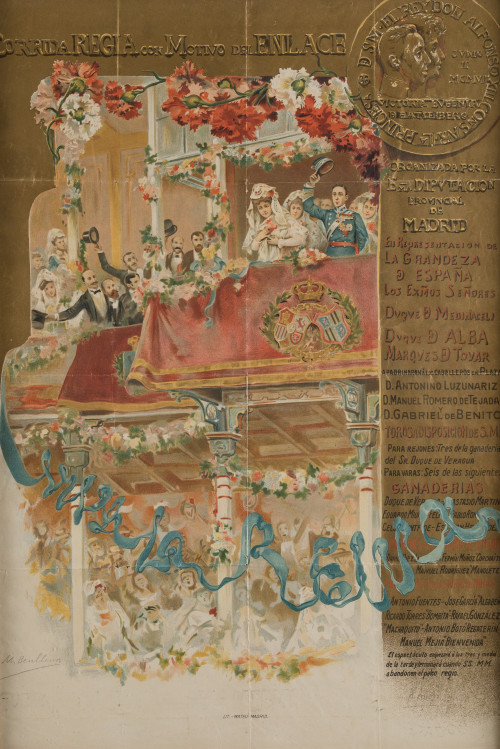 CORRIDA REGIA CON MOTIVO DEL ENLACE
D S.M. EL REY DON ALFONSO XIII CON S.A.R. PRINCESA
JUNIO
MCMVI
VICTORIA EUGENIA
ORGANIZADA POR LA
EXMA DIPUTACION
PROVINCIAL
DE
MADRID
En Representación de
LA GRANDEZA
D ESPAÑA
LOS EXMOS SEÑORES
DUQUE D MEDINACELI
DUQUE D ALBA
MARQUES D TOVAR
D. ANTONINO LUZUNARIZ
D. MANUEL ROMERO DE TEJADA
D. GABRIEL DE BENITO
TOROS A DISPOSICION DE S.M.
PARA REJONES: Tres de la ganadería
del Sr. DUQUE DE VERAGUA
PARA VARAS: Seis de las siguientes
GANADERIAS
DUQUE DE VERAGUA
EDUARDO MIURA
MANUEL RODRIGUEZ "MANOLETE"
ANTONIO FUENTES - JOSE GARCIA "ALGABEÑO"
RICARDO TORRES "BOMBITA" - RAFAEL GONZALEZ
"MACHAQUITO" - ANTONIO BOTO "REGATERIN"
MANUEL MEJIA "BIENVENIDA"
El espectáculo empezará a las tres y media
de la tarde y terminará cuando SS. M M.
abandonen el palco regio.
Viva la REINA
LIT. MATEU. MADRID.